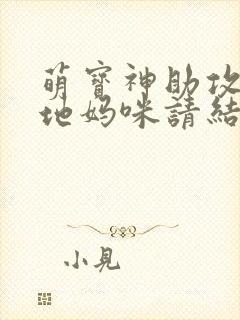 萌寶神助攻
地媽咪請結
小見